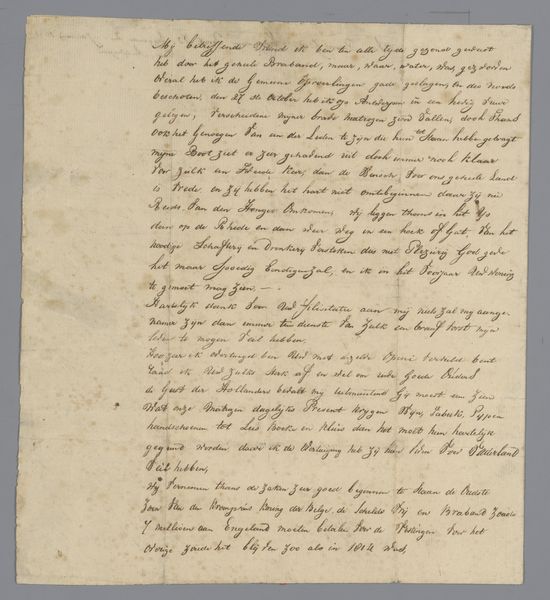 Mij betreffende Vriend ik ben ten alle tyde gezond geweest
heb door het geheele Braband, maar, waar, water, was, gezworven
Overal heb ik de Gemeene gade geslagen, en des noods
beschoten, den 27 ste October heb ik op Antwerpen in een hevig Vuur
gelegen, Verscheidene myner brave matrozen zien Vallen, doch thans
ook het Genoegen Van een der Leden te zijn die hun tot Staan hebbe gebragt
myn Boot ziet er zeer gehavend uit doch immer noch klaar
Voor zulk een Tweede keer, dan de Mensch, Voor ons geheele Land
is Vrede, en zy hebben het hart niet om te beginnen daar zij nu
Reeds Van den Honger Omkomen, wy liggen thans in het Ys
dan op de Rheede en dan weer weg in een hoek of Gat. Van het
nodige Schafterij en Drenkerij Voorzien dus met Plezierig God geve
het maar Spoedig Eindigen zal, en ik in het Voorjaar Uwe Woning
te gemoet mag zien, —
Hartelyk dank Voor Uwe Felicitatie aan mij niets zal my aange-
namer zyn dan immer ten dienste Van Zulk een braaf Vorst myn
leden te mogen Veil hebben,
Hoe zeer ik overtuigd ben Uwe met dezelve Vervuld bent
Land ik Uwe Zulks Sterk af en wel om uwe Goede Ouders
de Geest der Hollanders bevalt my uitmuntend Gy moest een zien
Wat onze Matrozen dagelyks Present krygen Wyn, Tabak, Pypen
handschoenen tot Lees Boeke en kleins dan het moet hun hartelyk
gegund worden daar ik de Overtuiging heb zy hun leven Voor Vaderland
Veil hebben,
Wy Vernemen thans de Zaken zeer goed beginnen te Staan de Oudste
Zoon Van den Kroonprins Koning der Belge, de Schelde Vrij en Braband Zoude
7 millioen aan Engeland moeten betalen Voor de Vestingen Voor het
Overige zoude het blyven zoo als in 1814 was,